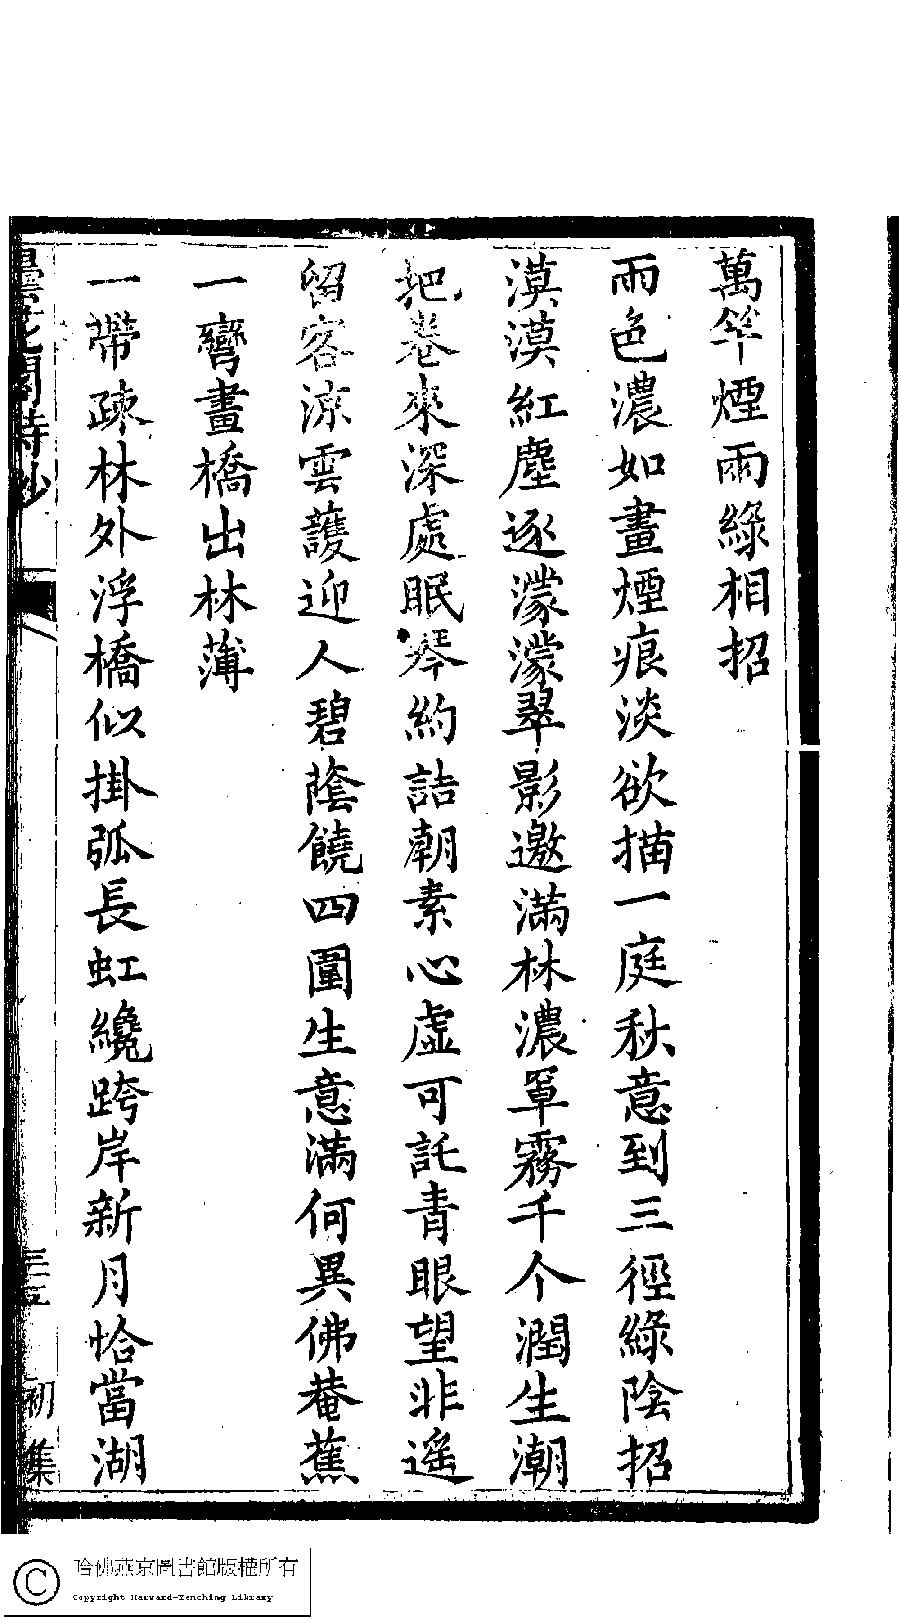 萬竿煙雨綠相招
雨色濃如畫煙痕淡欲描一庭秋意到三徑綠陰招
漠漠紅塵逐濛濛翠影邀滿林濃罩霧千个潤生潮
把卷來深處眠琴約詰朝素心虛可託青眼望非遙
留客涼雲護迎人碧蔭饒四圍生意滿何異佛菴蕉
一彎畫橋出林薄
一帶疎林外浮橋似掛弧長虹纔跨岸新月恰當湖
曇花閣詩鈔
初集
哈佛燕京圖書館版權所有
Copyright Harvard-Yenching Library